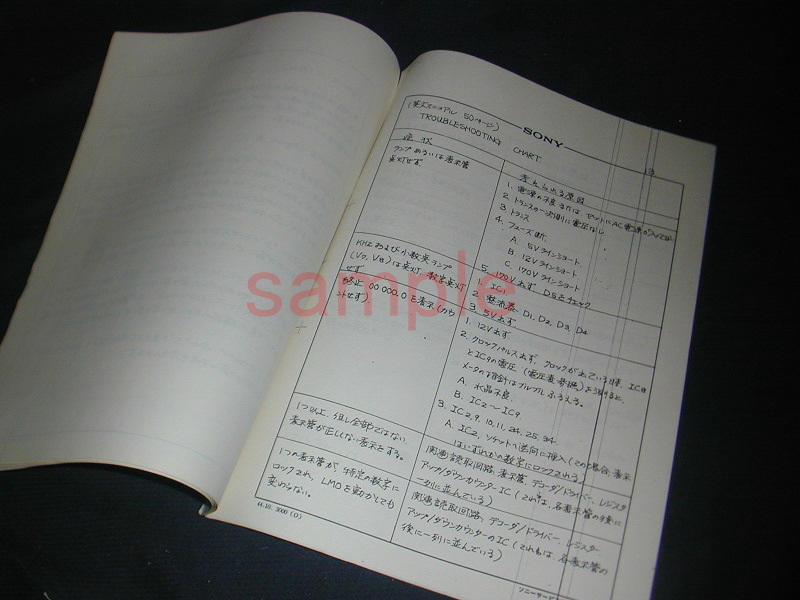 SONY
(英文マニュアル 50ページ)
TROUBLESHOOTING CHART
症状
ランプあるいは表示管
点灯せず
考えられる原因
1. 電源の不良 または セットにAC電源が
2. トランスの一次側に電圧なし
3. トランス
4. フューズ断
A. 5Vラインショート
B. 12Vラインショート
C. 170Vラインショート
5. 170V出ず D5をチェック
KHzおよび小数点ランプ
は点灯 数字点灯
せず
1. IC1
2. 整流器 D1, D2, D3, D4
3. 5V出ず
00 000.0 を表示(カウ
ントせず)
1. 12V出ず
2. クロックパルス出ず, クロックが出ている時, IC8
とIC9の電圧
メータの指針はブルブルふるえる。
A. 水晶不良
B. IC2〜IC9
3. IC2, 9, 10, 11, 24, 25, 34
A. IC2, ソケットへ逆向に挿入(この場合, 表示
はいずれかの数字にロックされる)
1つ以上, 但し全部ではない
表示管が正しくない表示をする。
関連読取回路, 表示管, デコーダ/ドライバー, レジスタ
アップ/ダウンカウンターIC(これは, 各表示管の後に
一列に並んでいる)
1つの表示管が, 特定の数字に
ロックされ, LMOを動かしても
変わらない。
関連読取回路, デコーダ/ドライバー レジスター
アップ/ダウンカウンターのIC(これも は 各表示管の
後に一列に並んでいる)
44.10. 3000 (O)
ソニーサービ
sample